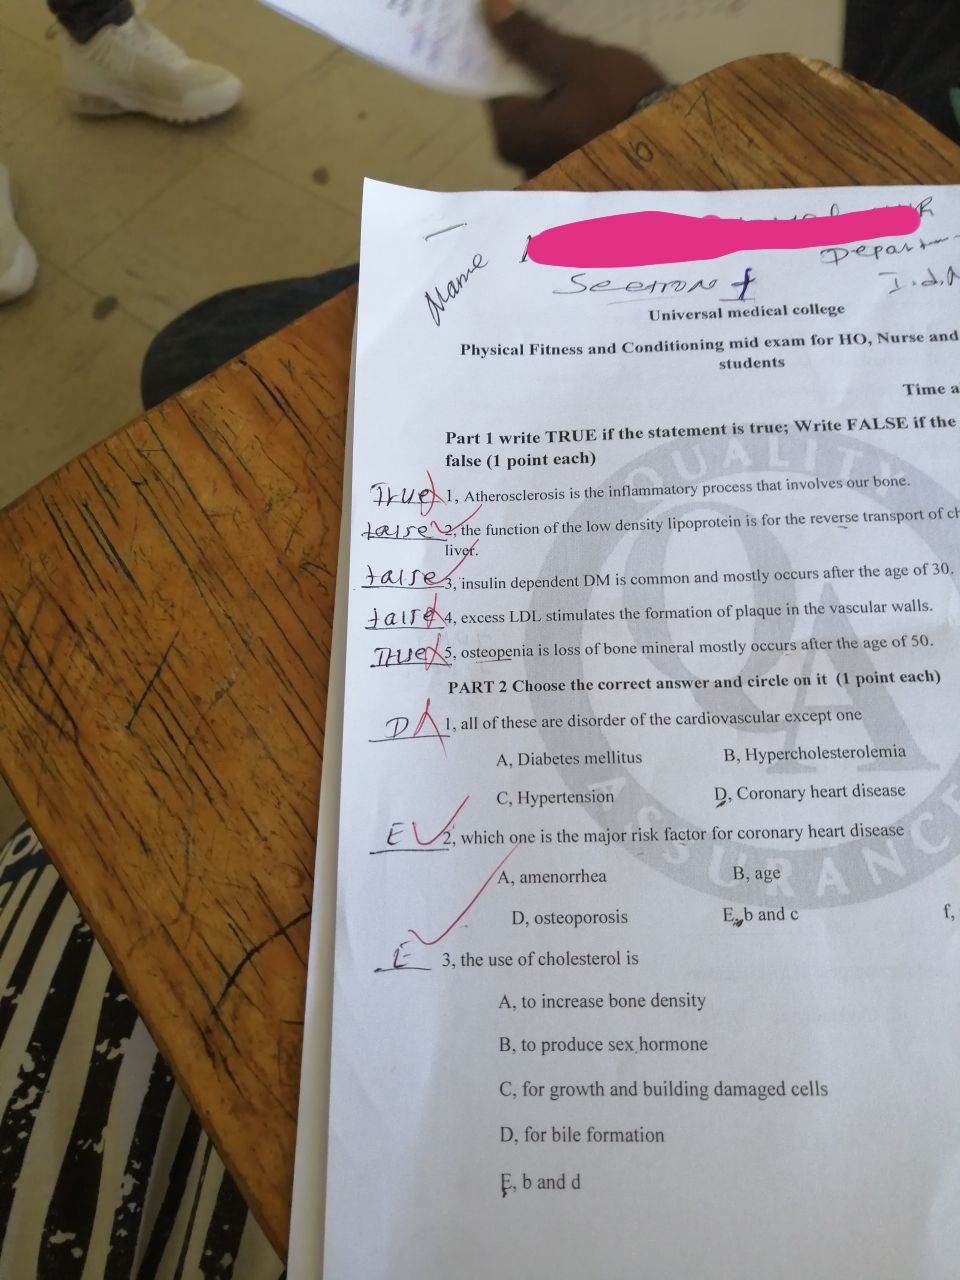 Name
Departm
Section
I.d.N
Universal medical college
Physical Fitness and Conditioning mid exam for HO, Nurse and
students
Time a
Part 1 write TRUE if the statement is true; Write FALSE if the
false (1 point each)
True 1, Atherosclerosis is the inflammatory process that involves our bone.
false 2, the function of the low density lipoprotein is for the reverse transport of ch
liver.
false 3, insulin dependent DM is common and mostly occurs after the age of 30.
false 4, excess LDL stimulates the formation of plaque in the vascular walls.
True 5, osteopenia is loss of bone mineral mostly occurs after the age of 50.
PART 2 Choose the correct answer and circle on it (1 point each)
D 1, all of these are disorder of the cardiovascular except one
A, Diabetes mellitus B, Hypercholesterolemia
C, Hypertension D, Coronary heart disease
E 2, which one is the major risk factor for coronary heart disease
A, amenorrhea B, age
D, osteoporosis E, b and c f,
E 3, the use of cholesterol is
A, to increase bone density
B, to produce sex hormone
C, for growth and building damaged cells
D, for bile formation
E, b and d
QUALITY
QA
ASSURANCE